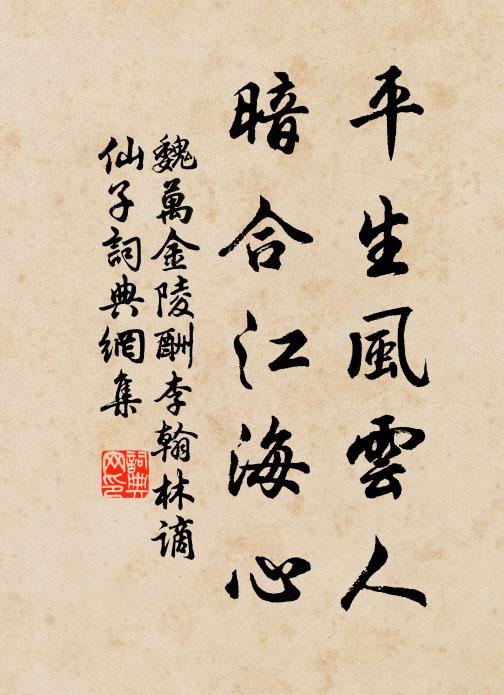 平生風雲人
暗合江海心
魏萬金陵酬李翰林謫
仙子詞典網集
詞典
网印